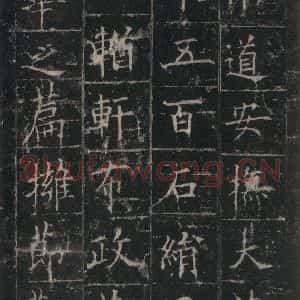 道安撫大
五百石絹
輶軒布政
華之篇擁節
Shufawang.CN